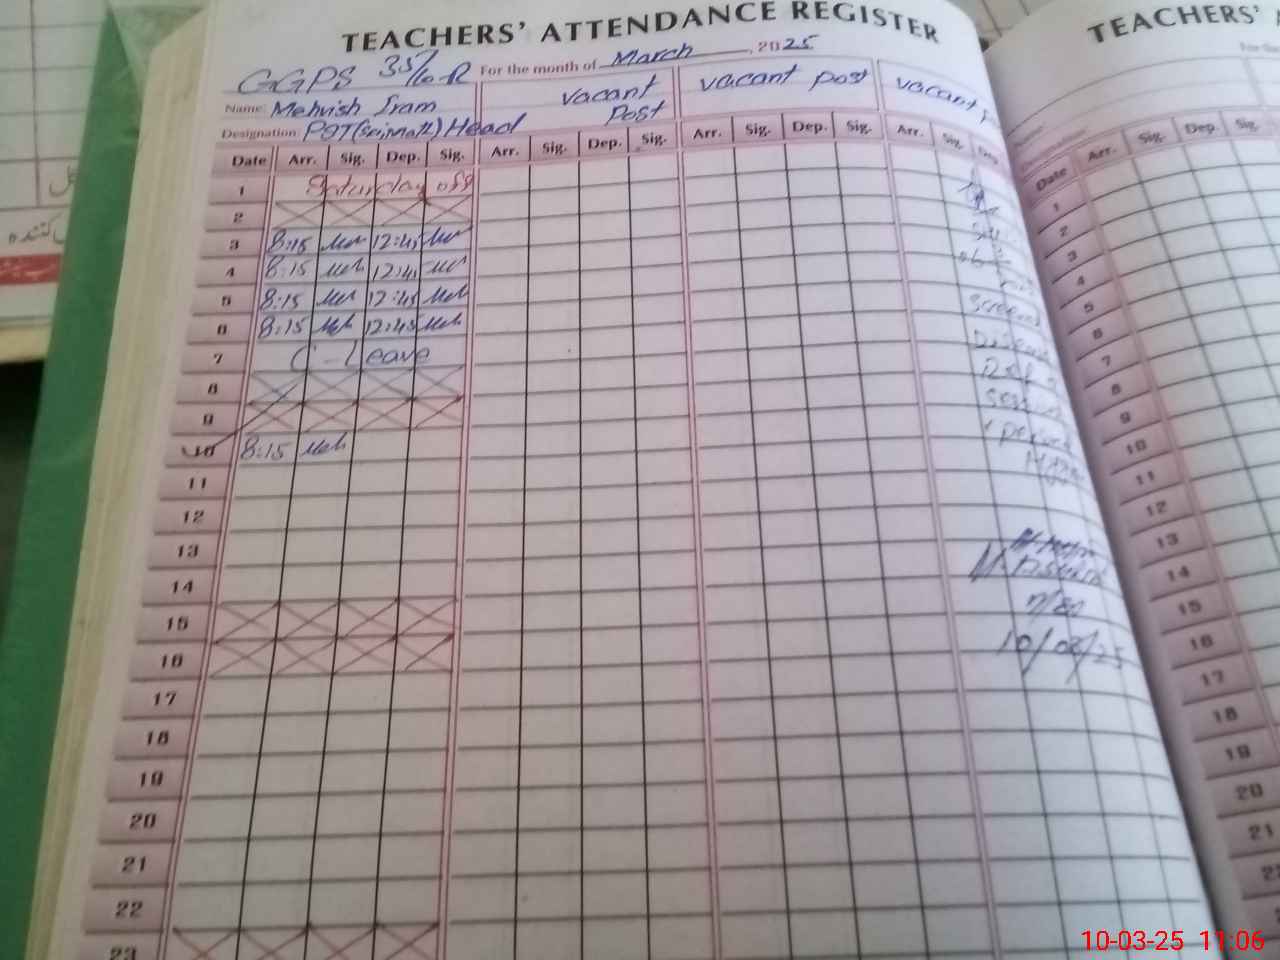 TEACHERS' ATTENDANCE REGISTER
GGPS 35/10-R For the month of March, 2025
Name: Mehvish Iram vacant Post vacant post vacant
Designation: PST(Sci Math) Head
Date Arr. Sig. Dep. Sig. Arr. Sig. Dep. Sig. Arr. Sig. Dep. Sig. Arr. Sig. Dep.
1 Saturday off
2
3 8:15 Meh 12:45 Meh
4 8:15 Meh 12:45 Meh
5 8:15 Meh 12:45 Meh
6 8:15 Meh 12:45 Meh
7 C-Leave
8
9
10 8:15 Meh
11
12
13
14
15
16
17
18
19
20
21
22
23
10/03/25
TEACHERS'
Date Arr. Sig. Dep. Sig.
1
2
3
4
5
6
7
8
9
10
11
12
13
14
15
16
17
18
19
20
21
10-03-25 11:06